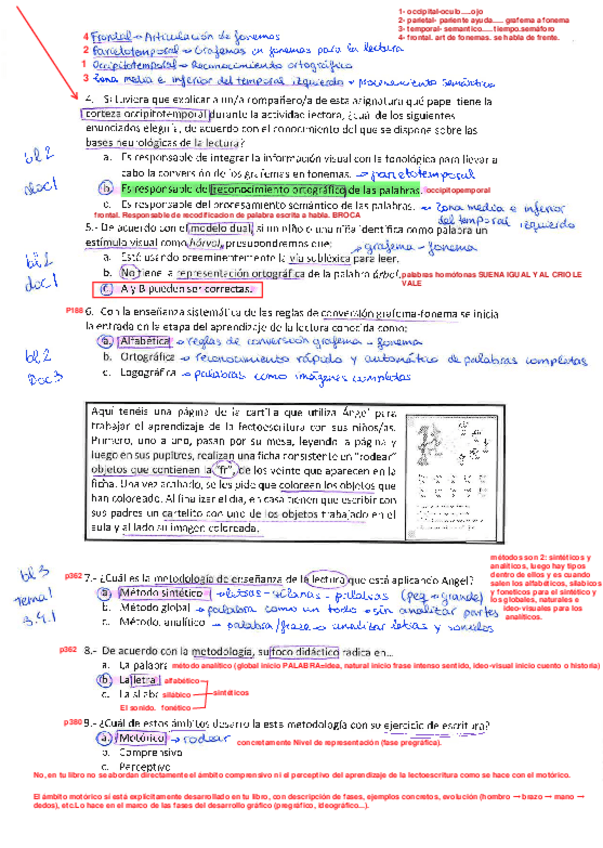 1- occipital-oculo.....ojo
2- parietal- pariente ayuda..... grafema a fonema
3- temporal- semantico......tiempo.semáforo
4- frontal. art de fonemas. se habla de frente.
4 Frontal → Articulación de fonemas
2 Parietotemporal → Grafemas en fonemas para la lectura
1 Occipitotemporal → Reconocimiento ortográfico
3 Zona media e inferior del temporal izquierdo → Procesamiento semántico
4. Si tuviera que explicar a un/a compañero/a de esta asignatura qué papel tiene la
corteza occipitotemporal durante la actividad lectora, ¿cuál de los siguientes
enunciados elegiría, de acuerdo con el conocimiento del que se dispone sobre las
bases neurológicas de la lectura?
bl 2
doc 1
a. Es responsable de integrar la información visual con la fonológica para llevar a
cabo la conversión de los grafemas en fonemas. → parietotemporal
b. Es responsable del reconocimiento ortográfico de las palabras. occipitopemporal
c. Es responsable del procesamiento semántico de las palabras. → Zona media e inferior
del temporal izquierdo
frontal. Responsable de recodificacion de palabra escrita a habla. BROCA
5.- De acuerdo con el modelo dual, si un niño o una niña identifica como palabra un
estímulo visual como hárvol, presupondremos que:
→ grafema - fonema
bl 2
doc 1
a. Está usando preeminentemente la vía subléxica para leer.
b. No tiene la representación ortográfica de la palabra árbol.
palabras homófonas SUENA IGUAL Y AL CRIO LE
VALE
c. A y B pueden ser correctas.
P188 6. Con la enseñanza sistemática de las reglas de conversión grafema-fonema se inicia
la entrada en la etapa del aprendizaje de la lectura conocida como:
bl 2
Doc 3
a. Alfabética → reglas de conversión grafema - fonema
b. Ortográfica → reconocimiento rápido y automático de palabras completas
c. Logográfica → palabras como imágenes completas
Aquí tenéis una página de la cartilla que utiliza Ángel para
trabajar el aprendizaje de la lectoescritura con sus niños/as.
Primero, uno a uno, pasan por su mesa, leyendo la página y
luego en sus pupitres, realizan una ficha consistente en "rodear"
objetos que contienen la "fr", de los veinte que aparecen en la
ficha. Una vez acabado, se les pide que coloreen los objetos que
han coloreado. Al finalizar el día, en casa tienen que escribir con
sus padres un cartelito con uno de los objetos trabajado en el
aula y al lado su imagen coloreada.
métodos son 2: sintéticos y
analíticos, luego hay tipos
dentro de ellos y es cuando
salen los alfabéticos, silábicos
y foneticos para el sintético y
los globales, naturales e
ideo-visuales para los
analíticos.
bl 3
tema 1
3.4.1
p362 7.- ¿Cuál es la metodología de enseñanza de la lectura que está aplicando Ángel?
a. Método sintético → letras - sílabas - palabras (peq → grande)
b. Método global → palabra como un todo → sin analizar partes
c. Método. analítico → palabra/frase → analizar letras y sonidos
p362 8.- De acuerdo con la metodología, su foco didáctico radica en...
a. La palabra método analítico (global inicio PALABRA=idea, natural inicio frase intenso sentido, ideo-visual inicio cuento o historia)
b. La letra alfabético
c. La sílaba silábico
sintéticos
El sonido. fonético
p380 9.- ¿Cuál de estos ámbitos desarrolla esta metodología con su ejercicio de escritura?
a. Motórico → rodear concretamente Nivel de representación (fase pregráfica).
b. Comprensivo
c. Perceptivo
No, en tu libro no se abordan directamente el ámbito comprensivo ni el perceptivo del aprendizaje de la lectoescritura como se hace con el motórico.
El ámbito motórico sí está explícitamente desarrollado en tu libro, con descripción de fases, ejemplos concretos, evolución (hombro → brazo → mano →
dedos), etc.Lo hace en el marco de las fases del desarrollo gráfico (pregráfico, ideográfico...).